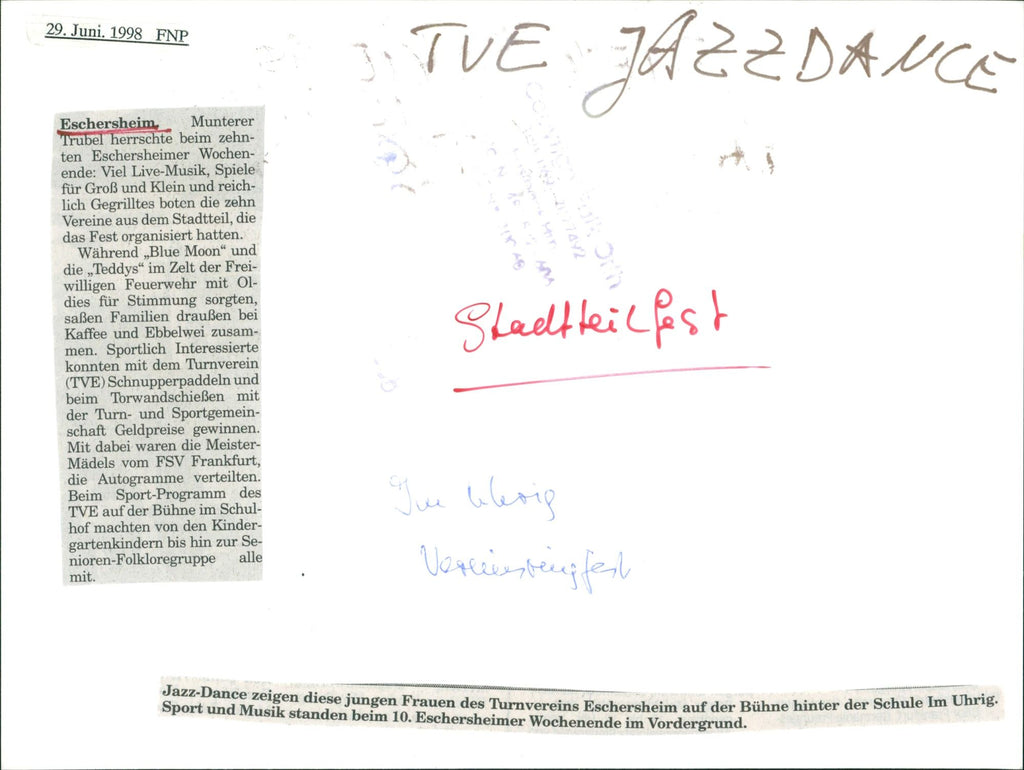 29. Juni. 1998 FNP
TVE JAZZDANCE
Eschersheim. Munterer
Trubel herrschte beim zehn-
ten Eschersheimer Wochen-
ende: Viel Live-Musik, Spiele
für Groß und Klein und reich-
lich Gegrilltes boten die zehn
Vereine aus dem Stadtteil, die
das Fest organisiert hatten.
Während „Blue Moon“ und
die „Teddys“ im Zelt der Frei-
willigen Feuerwehr mit Ol-
dies für Stimmung sorgten,
saßen Familien draußen bei
Kaffee und Ebbelwei zusam-
men. Sportlich Interessierte
konnten mit dem Turnverein
(TVE) Schnupperpaddeln und
beim Torwandschießen mit
der Turn- und Sportgemein-
schaft Geldpreise gewinnen.
Mit dabei waren die Meister-
Mädels vom FSV Frankfurt,
die Autogramme verteilten.
Beim Sport-Programm des
TVE auf der Bühne im Schul-
hof machten von den Kinder-
gartenkindern bis hin zur Se-
nioren-Folkloregruppe alle
mit.
Stadtteilfest
Im Uhrig
Vereinsringfest
Jazz-Dance zeigen diese jungen Frauen des Turnvereins Eschersheim auf der Bühne hinter der Schule Im Uhrig.
Sport und Musik standen beim 10. Eschersheimer Wochenende im Vordergrund.